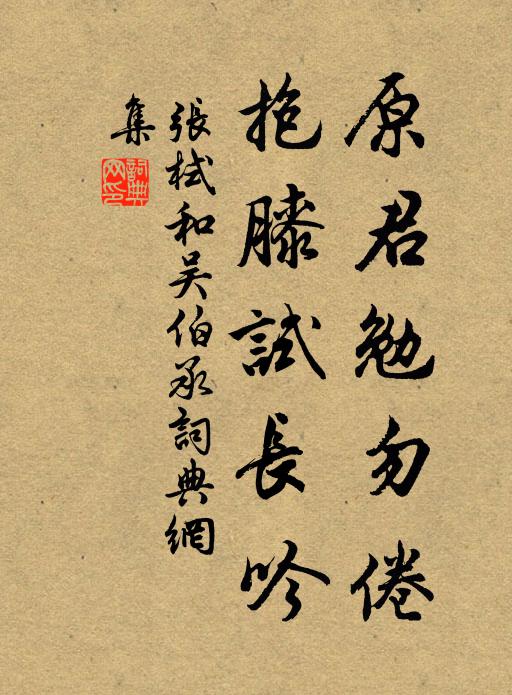 原君勉勿倦
抱膝試長吟
張栻和吴伯承詞典網
集
詞典网印